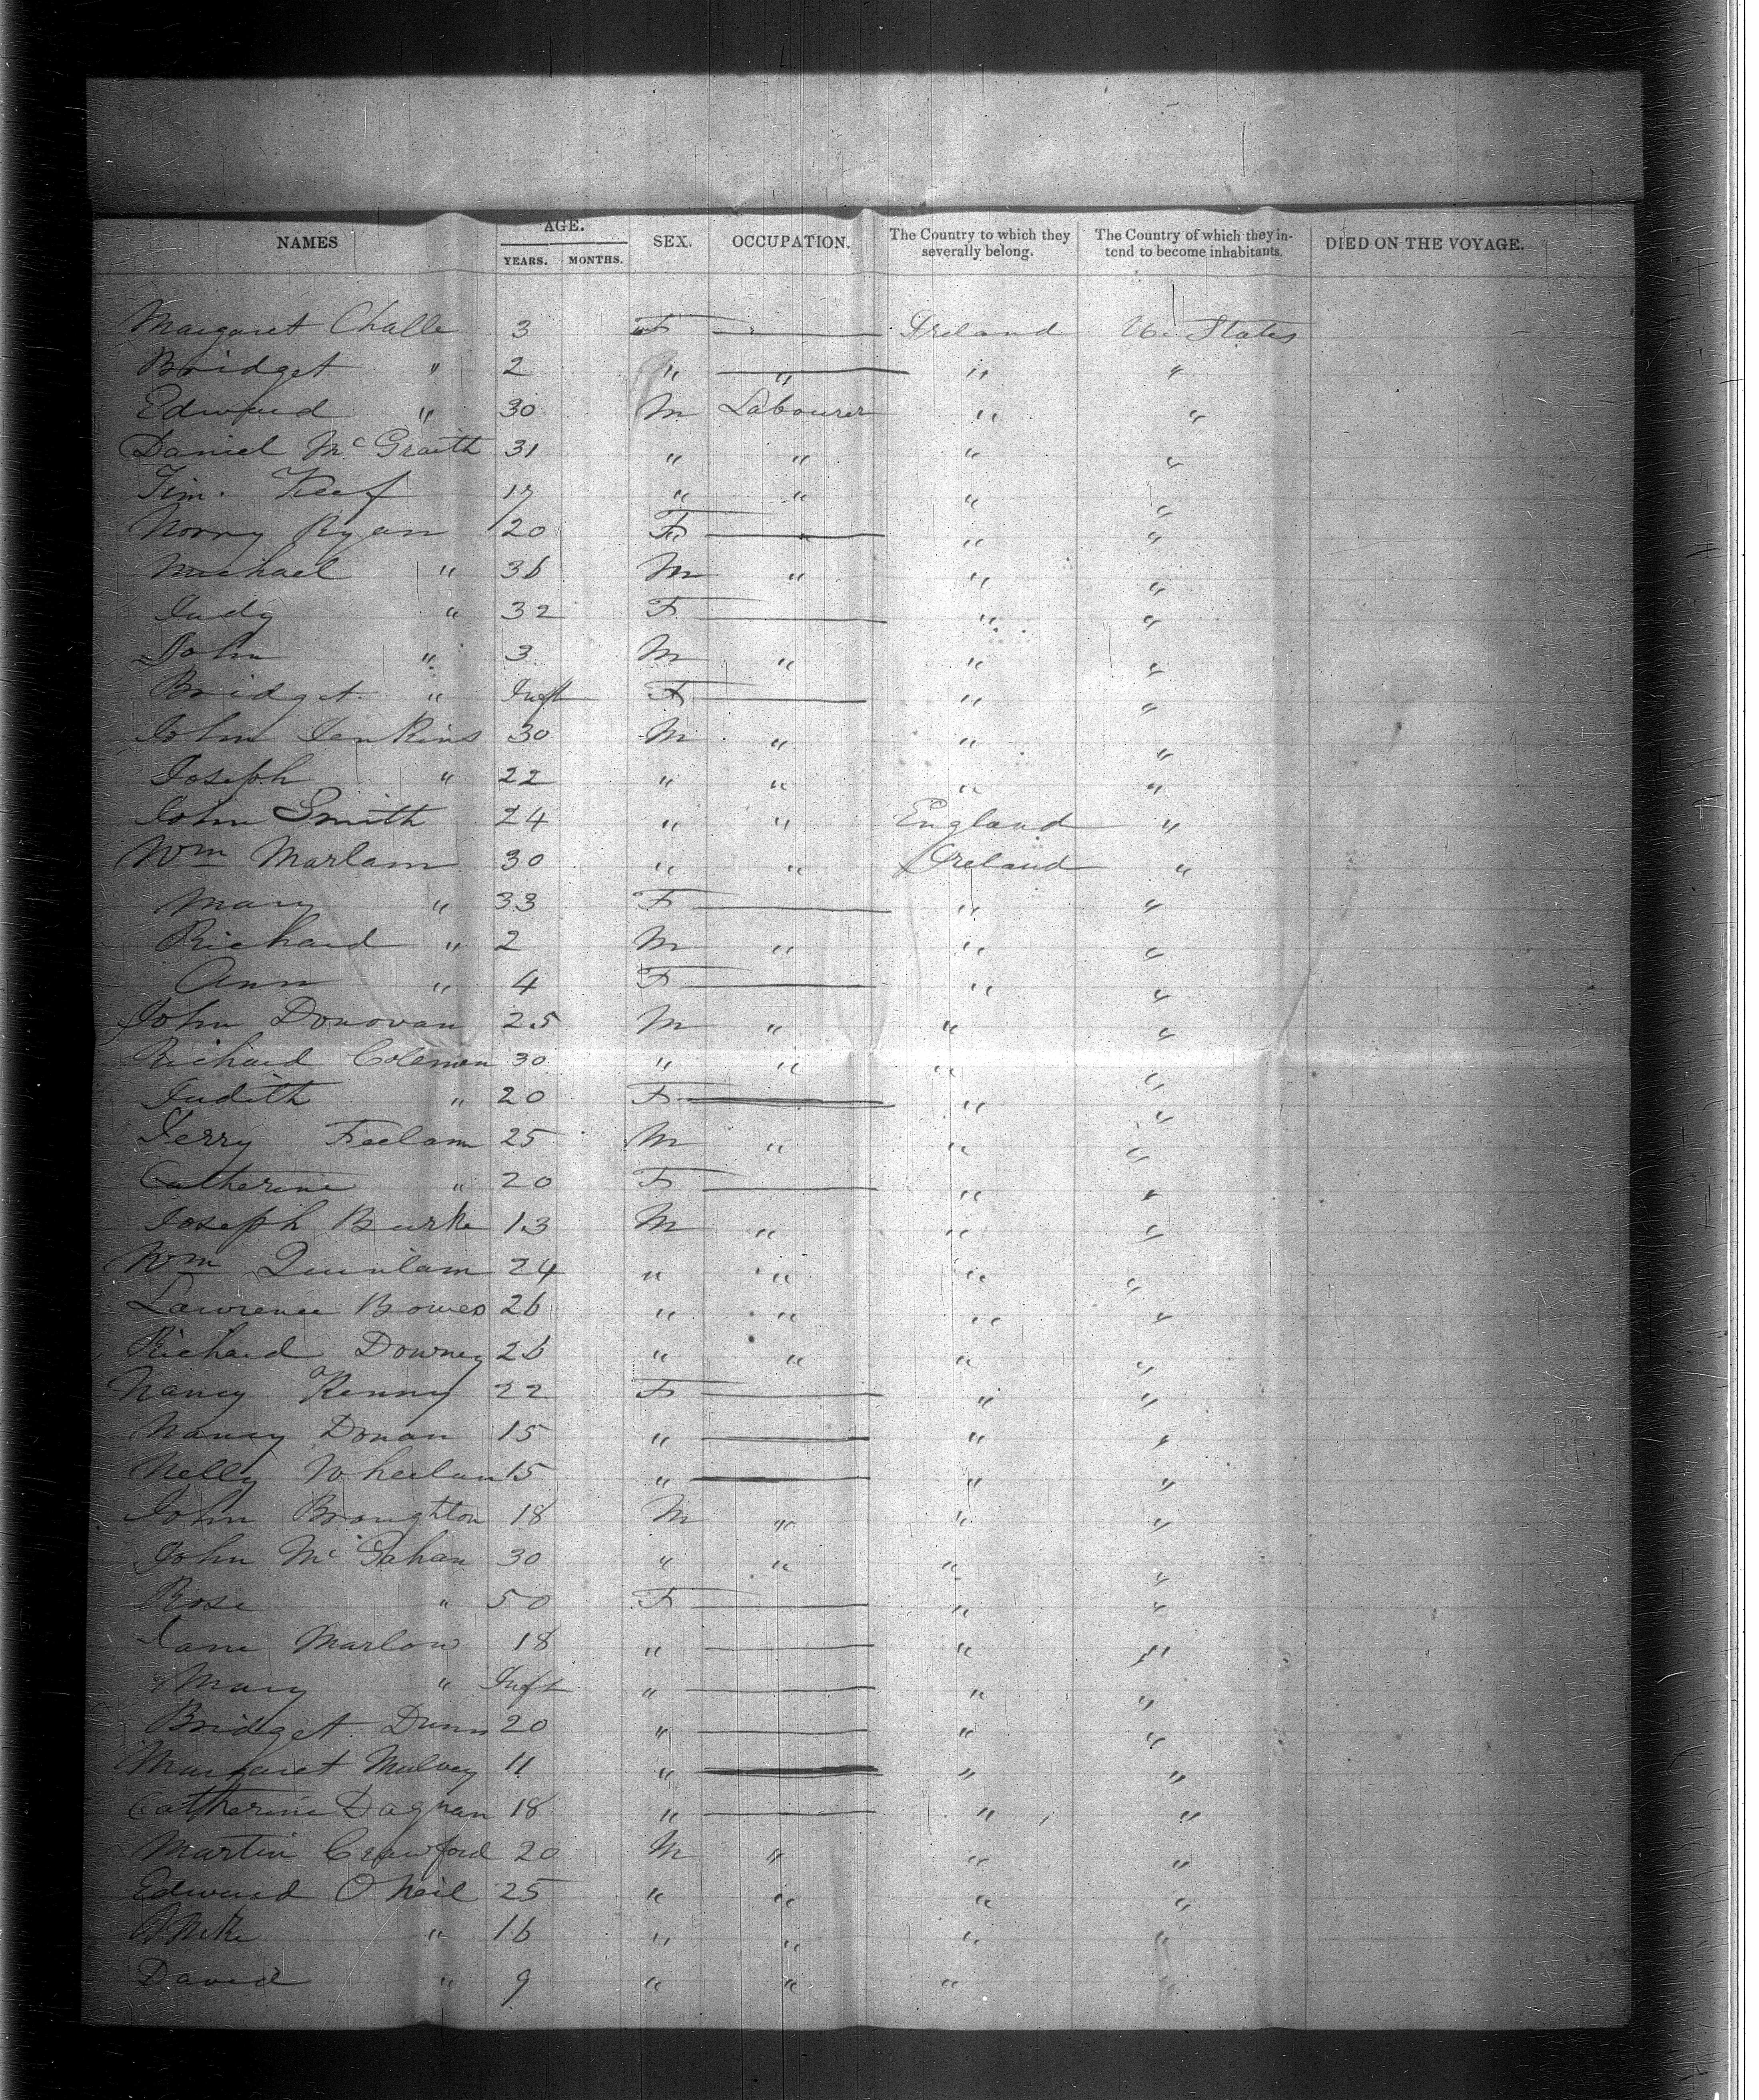 NAMES AGE. YEARS. MONTHS. SEX. OCCUPATION. The Country to which they severally belong. The Country of which they intend to become inhabitants. DIED ON THE VOYAGE.
Margaret Challe 3 F — Ireland U. States
Bridget " 2 " — " " "
Edward " 30 M Labourer " "
Daniel McGraith 31 " " " "
Tim. Keef 17 " " " "
Norry Ryan 20 F — " "
Michael " 36 M " " "
Judy " 32 F — " "
John " 3 M " " "
Bridget " Inft F — " "
John Jenkins 30 M " " "
Joseph " 22 " " " "
John Smith 24 " " England "
Wm Marlam 30 " " Ireland "
Mary " 33 F — " "
Richard " 2 M " " "
Ann " 4 F — " "
John Donovan 25 M " " "
Richard Coleman 30 " " " "
Judith " 20 F — " "
Jerry Feelam 25 M " " "
Catherine " 20 F — " "
Joseph Burke 13 M " " "
Wm Quinlam 24 " " " "
Lawrence Bowes 26 " " " "
Richard Downey 26 " " " "
Nancy Kenny 22 F — " "
Nancy Donan 15 " — " "
Nelly Wheelan 15 " — " "
John Broughton 18 M " " "
John McGahan 30 " " " "
Rose " 50 F — " "
Jane Marlow 18 " — " "
Mary " Inft " — " "
Bridget Dunn 20 " — " "
Margaret Mulvey 11 " — " "
Catherine Dagnan 18 " — " "
Martin Crawford 20 M " " "
Edward O'Neil 25 " " " "
Mike " 16 " " " "
David " 9 " " "